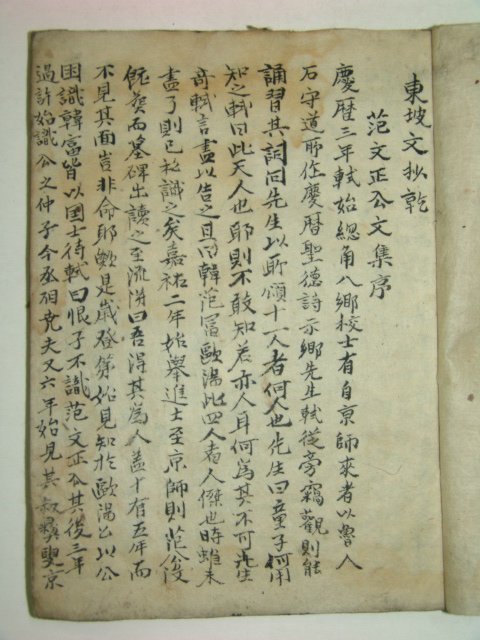 東坡文抄乾
范文正公文集序
慶曆三年軾始總角入鄉校士有自京師來者以魯人
石守道所作慶曆聖德詩示鄉先生軾從旁竊觀則能
誦習其詞问先生以所頌十一人者何人也先生曰童子何用
知之軾曰此天人也耶則不敢知若亦人耳何為其不可先生
奇軾言盡以告之且曰韓范富歐陽此四人者人傑也時雖未
盡了則已私識之矣嘉祐二年始舉進士至京師則范公歿
既葬而墓碑出讀之至流涕曰吾得其為人盖十有五年而
不見其面豈非命耶歟是歲登第始見知於歐陽公以公
因識韓富皆以國士待軾曰恨子不識范文正公其後三年
過許始識公之仲子今丞相堯夫又六年始見其叔彛叟京